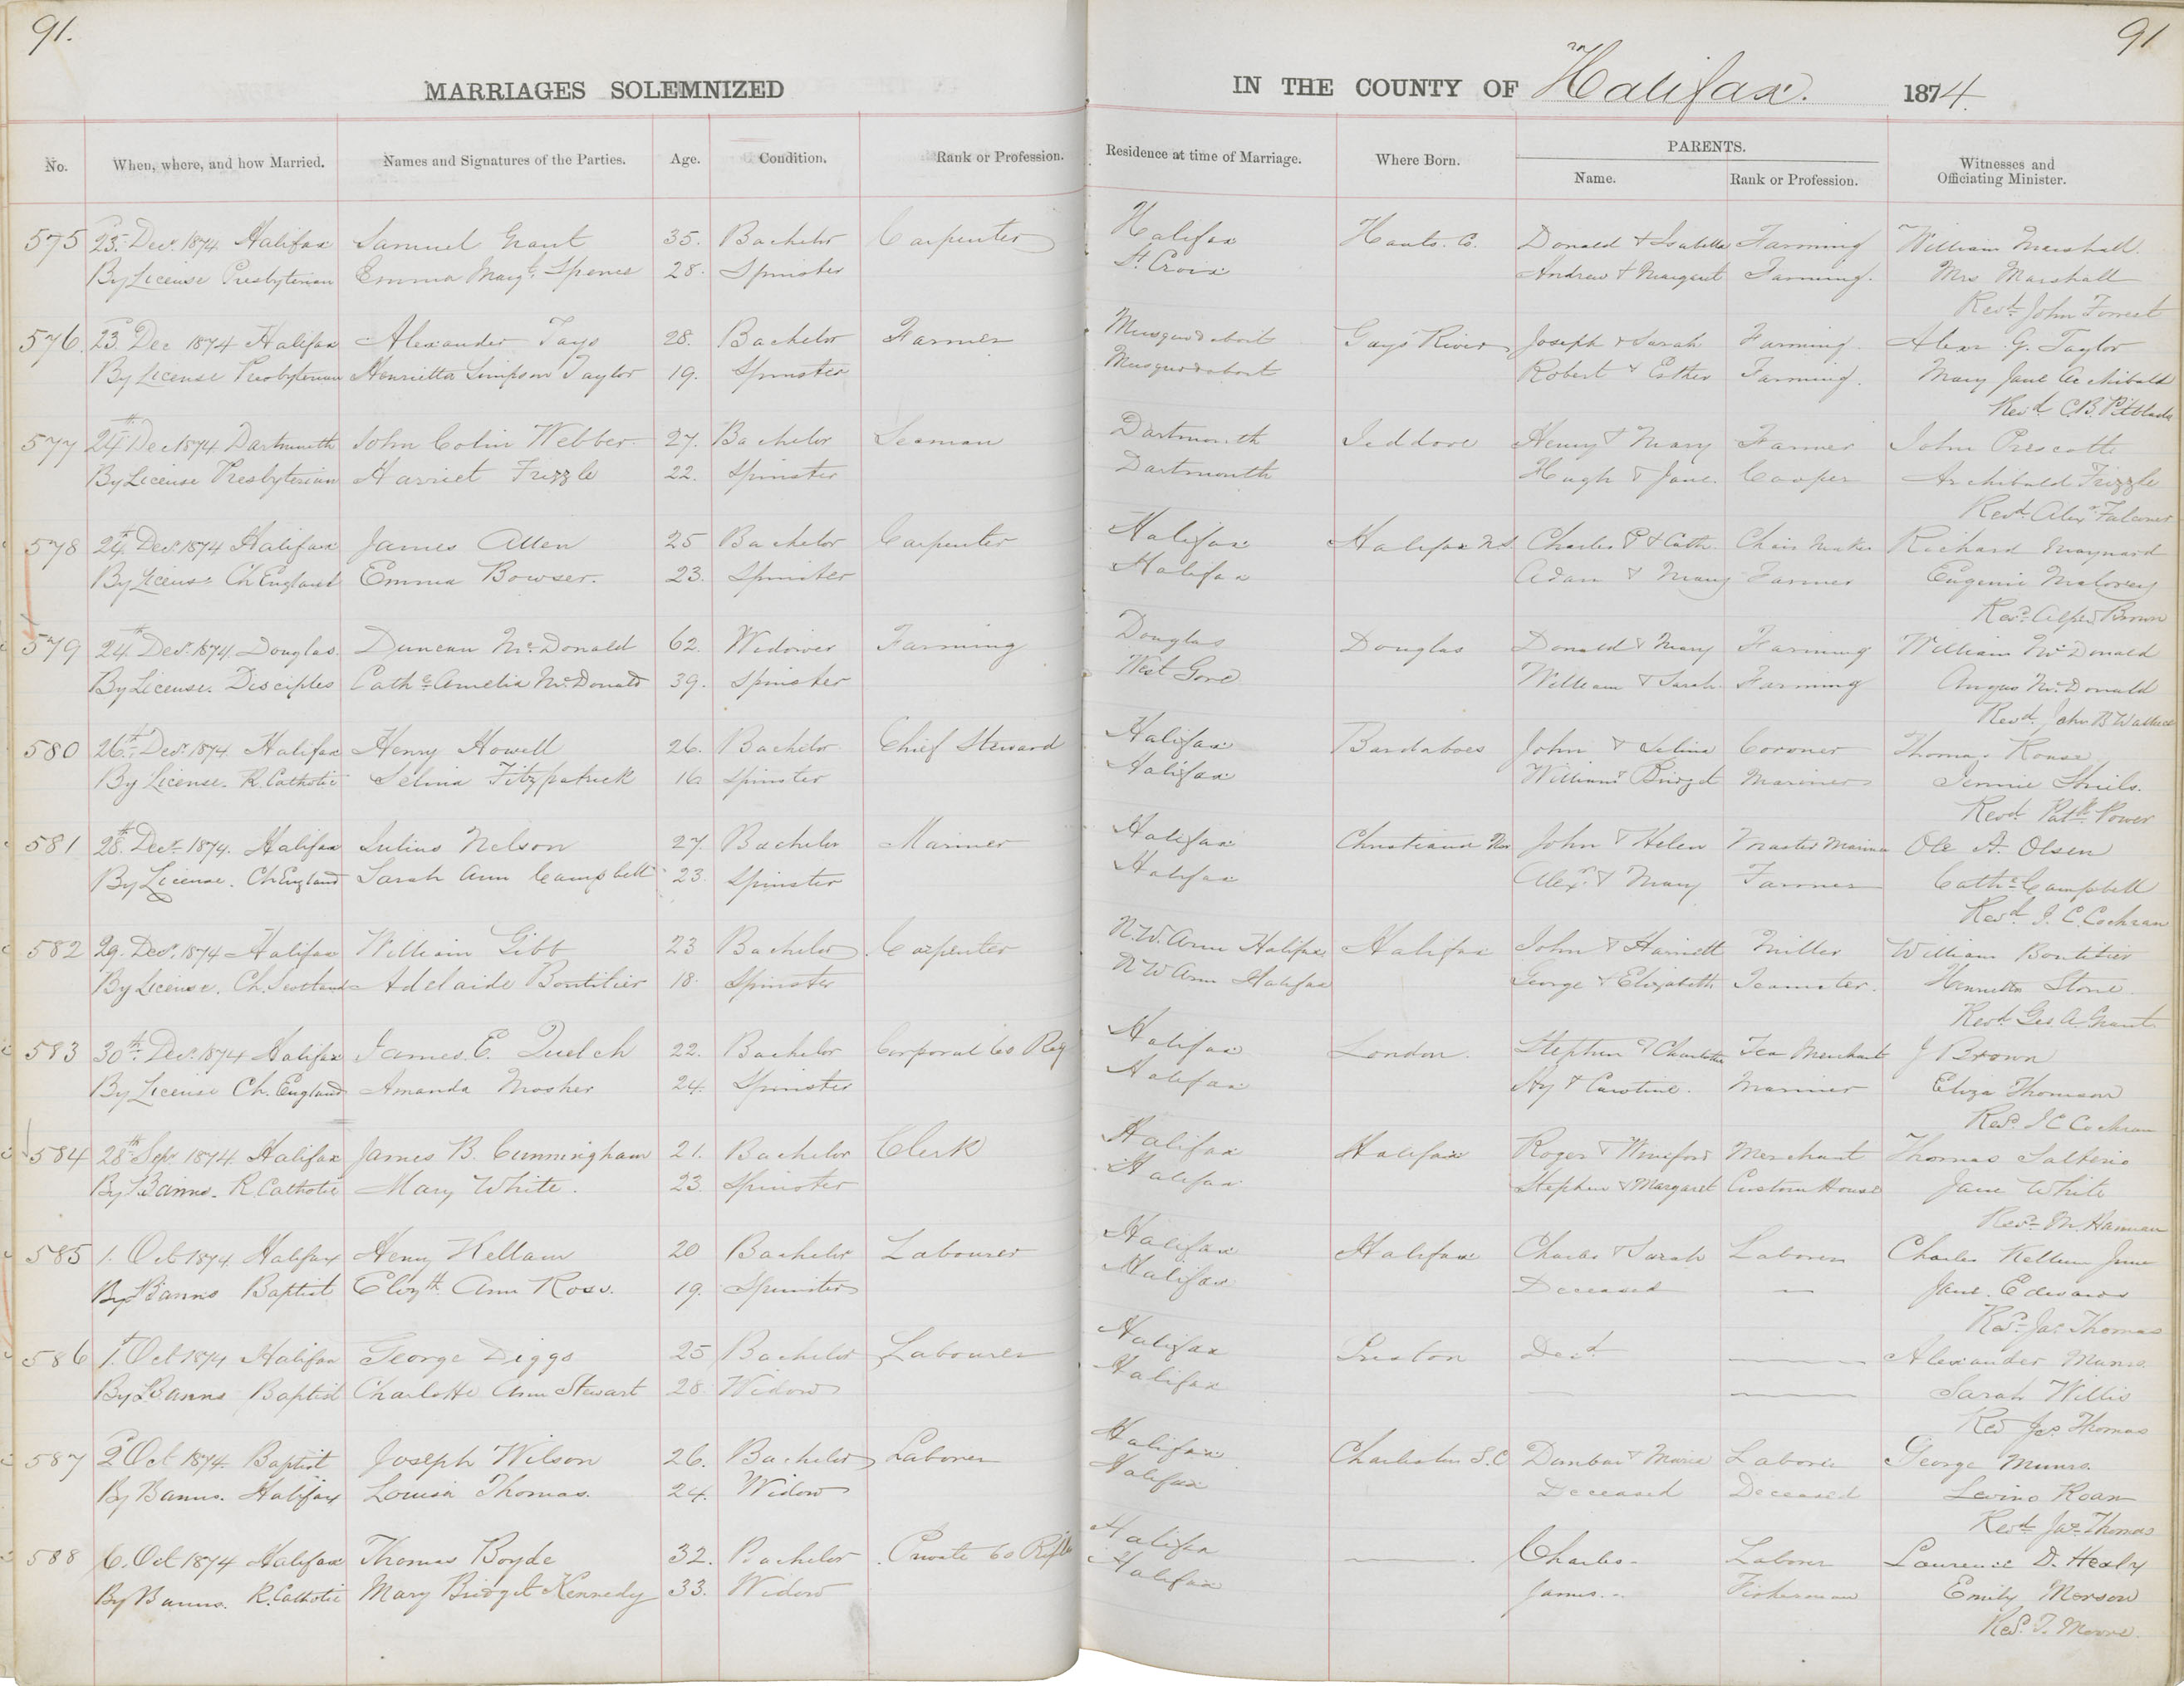 91.
91
MARRIAGES SOLEMNIZED IN THE COUNTY OF Halifax. 1874.
No. When, where, and how Married. Names and Signatures of the Parties. Age. Condition. Rank or Profession. Residence at time of Marriage. Where Born. PARENTS. Name. Rank or Profession. Witnesses and Officiating Minister.
575 23. Decr. 1874 Halifax Samuel Grant 35. Bachelor Carpenter Halifax Hants. Co. Donald & Isabella Farming William Marshall.
By License Presbyterian Emma Margt. Spence 28. Spinster St. Croix Andrew & Margaret Farming. Mrs Marshall
Revd. John Forrest
576. 23 Dec 1874 Halifax Alexander Tays 28. Bachelor Farmer Musquodoboit Gays River Joseph & Sarah Farming. Alexr. G. Taylor
By License Presbyterian Henrietta Simpson Taylor 19. Spinster Musquodoboit Robert & Esther Farming. Mary Jane Archibald
Revd. C.B. Pitblado
577 24th Dec 1874 Dartmouth John Colin Webber. 27. Bachelor Seaman Dartmouth Jeddore Henry & Mary Farmer John Prescott
By License Presbyterian Harriet Frizzle 22. Spinster Dartmouth Hugh & Jane. Cooper Archibald Frizzle
Revd. Alexr. Falconer
578 24th Decr. 1874 Halifax James Allen 25 Bachelor Carpenter Halifax Halifax N.S. Charles P & Cath. Chair Maker Richard Maynard
By License Ch England Emma Bowser. 23. Spinster Halifax Adam & Mary Farmer Eugenie
Revd. Alfred Brown
579 24th Decr. 1874 Douglas. Duncan McDonald 62. Widower Farming Douglas Douglas Donald & Mary Farming William McDonald
By License. Disciples Cathe. Amelia McDonald 39. Spinster West Gore William & Sarah Farming Angus McDonald
Revd. John B Wallace
580 26th. Decr. 1874. Halifax Henry Howell 26. Bachelor Chief Steward Halifax Bardaboes John & Selina Coroner Thomas
By License. R. Catholic Selina Fitzpatrick 16. Spinster Halifax William & Bridgd Mariner Jennie Shiels.
Revd. Patk. Power
581 28th. Decr. 1874. Halifax Julius Nelson 27. Bachelor Mariner Halifax Christiana Nor John & Helen Master Mariner Ole A. Olsen
By License. Ch England Sarah Ann Campbell 23. Spinster Halifax Alexr. & Mary Farmer Cathe. Campbell
Revd. J. C. Cochran
582 29. Decr. 1874 Halifax William Gibb 23 Bachelor Carpenter N.W. Arm Halifax Halifax John & Harriett Miller William Boutilier
By License. Ch. Scotland Adelaide Boutilier 18. Spinster N W Arm Halifax George & Elizabeth Teamster. Henrietta Stone
Revd. Geo. A. Grant
583 30th. Decr. 1874 Halifax James. E. Quelch 22. Bachelor Corporal 60 Reg Halifax London. Stephen & Charlotte Tea Merchant J Brown
By License Ch. England Amanda Mosher 24. Spinster Halifax Hy & Caroline. Mariner Eliza Thomson
Revd. J C Cochran
584 28th Sepr. 1874. Halifax James B. Cunningham 21. Bachelor Clerk Halifax Halifax Roger & Wineford Merchant Thomas
By Banns. R. Catholic Mary White. 23. Spinster Halifax Stephen & Margaret Custom House Jane White
Revd. M. Hannan
585 1. Oct 1874 Halifax Henry Kellum 20 Bachelor Labourer Halifax Halifax Charles & Sarah Laborer Charles Kellum
By Banns Baptist Elizth. Ann Ross. 19. Spinster Halifax Deceased — Jane. Edwards
Revd. Jas. Thomas
586 1. Oct 1874 Halifax George Diggs 25 Bachelor Labourer Halifax Preston Decd. — Alexander Munro.
By Banns Baptist Charlotte Ann Stewart 28. Widow Halifax — — Sarah Willis
Revd Jas. Thomas
587 2 Oct 1874. Baptist Joseph Wilson 26. Bachelor Laborer Halifax Charleston S.C Dunbar & Maria Laborer George Munro.
By Banns. Halifax Louisa Thomas. 24. Widow Halifax Deceased Deceased Roan
Revd. Jas. Thomas
588 6. Oct 1874 Halifax Thomas Boyde 32. Bachelor Private 60 Rifles Halifax — Charles — Laborer Laurence D. Healy
By Banns. R. Catholic Mary Bridget Kennedy 33. Widow Halifax James. — Fisherman Emily Morson
Revd. T. Moore.